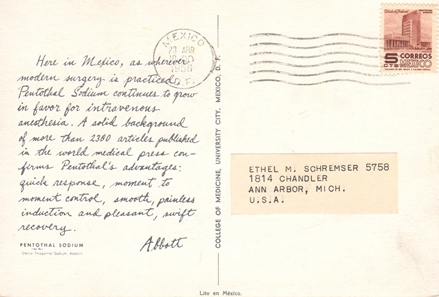 Here in Mexico, as wherever
modern surgery is practiced,
Pentothal Sodium continues to grow
in favor for intravenous
anesthesia. A solid background
of more than 2300 articles published
in the world medical press con-
firms Pentothal's advantages:
quick response, moment to
moment control, smooth, painless
induction and pleasant, swift
recovery.
Abbott
PENTOTHAL SODIUM
COLLEGE OF MEDICINE, UNIVERSITY CITY, MEXICO, D. F.
MEXICO
23 ABR
1956
D. F.
5
CTS
CORREOS
MEXICO
ETHEL M. SCHREMSER 5758
1814 CHANDLER
ANN ARBOR, MICH.
U.S.A.
Lito en México.